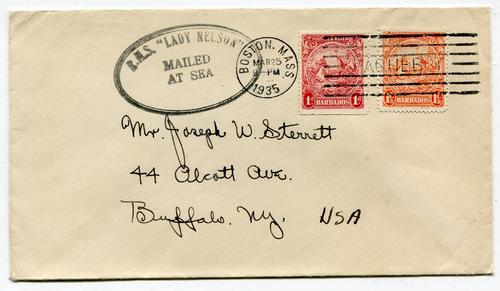 R.M.S. "LADY NELSON"
MAILED
AT SEA
BOSTON, MASS.
MAR 25
PM
1935
PAQUEBOT
1d BARBADOS 1d
1½ BARBADOS 1½
Mr. Joseph W. Sterrett
44 Alcott Ave.
Buffalo, Ny. USA